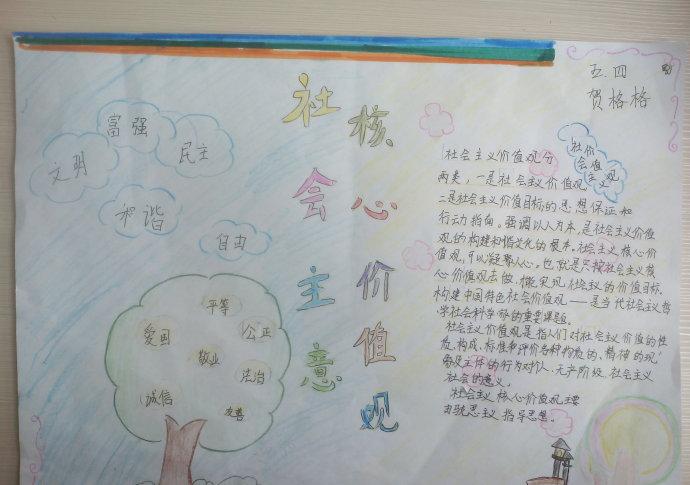 五.四
贺格格
社会主意
核心价值观
富强
民主
文明
和谐
自由
平等
爱国
公正
敬业
法治
诚信
友善
社会主义价值观分
两类，一是社会主义价值观
二是社会主义价值目标的思想保证和
行动指向。强调以人为本，是社会主义价值
观的构建和谐文化的根本。社会主义核心价
值观，可以凝聚人心。也就是只按社会主义核
心价值观去做，才能实现社会主义的价值目标，
构建中国特色社会价值观——是当代社会主义哲
学社会科学的重要课题。
社会主义价值观是指人们对社会主义价值的性
质、构成、标准和评价各种物质的、精神的现
象及主体的行为对个人、无产阶级、社会主义
社会的意义。
社会主义核心价值观主要
思主义指导思想。